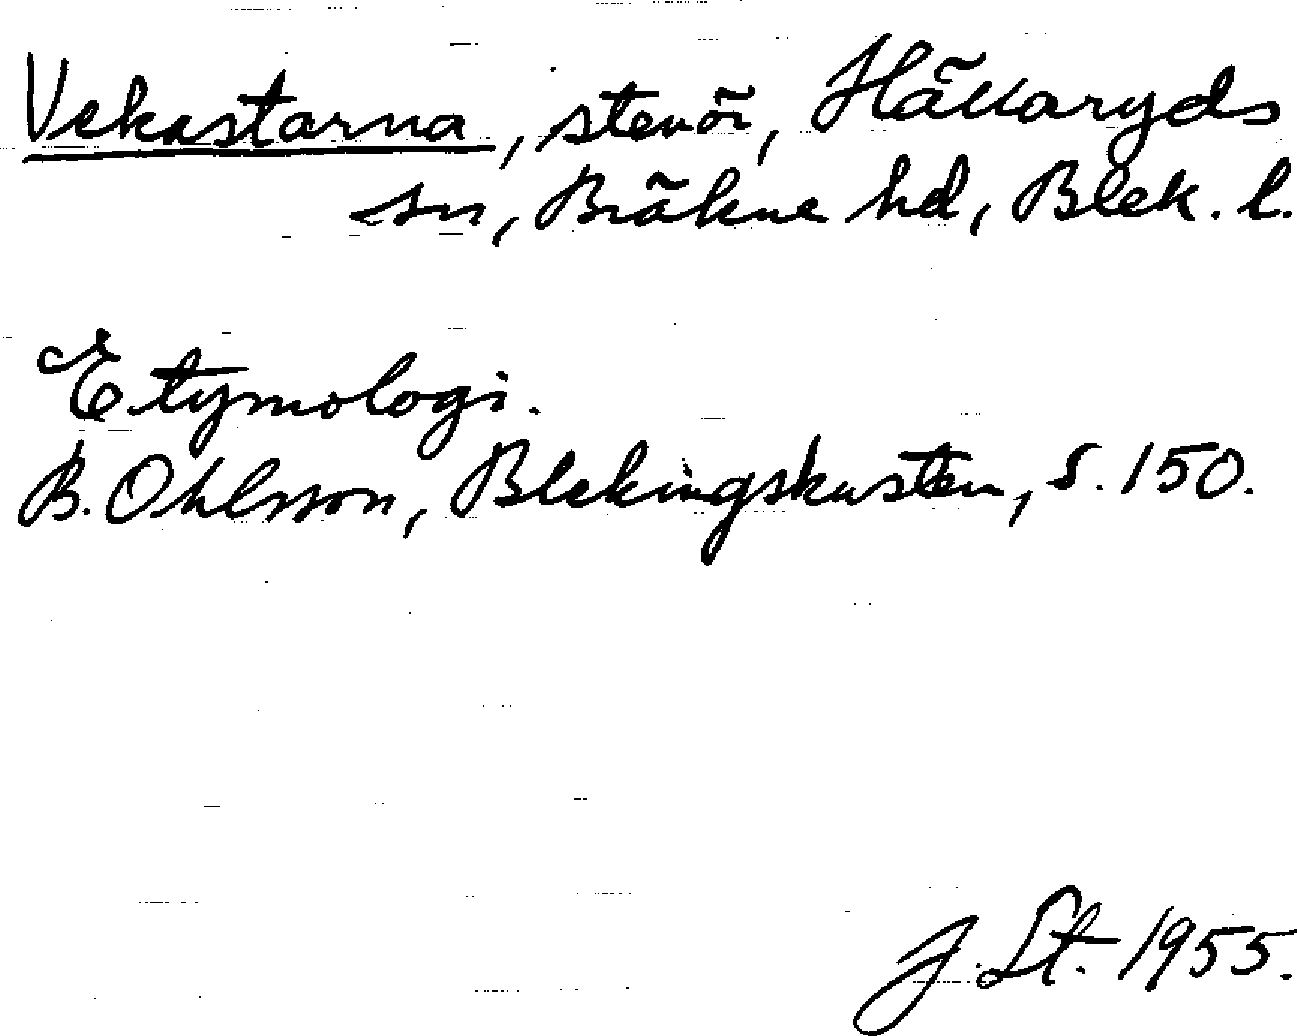 Vekastarna, stenör, Hällaryds
sn, Bräkne hd, Blek. l.
Etymologi.
B. Ohlsson, Blekingskusten, s. 150.
J. St. 1955.